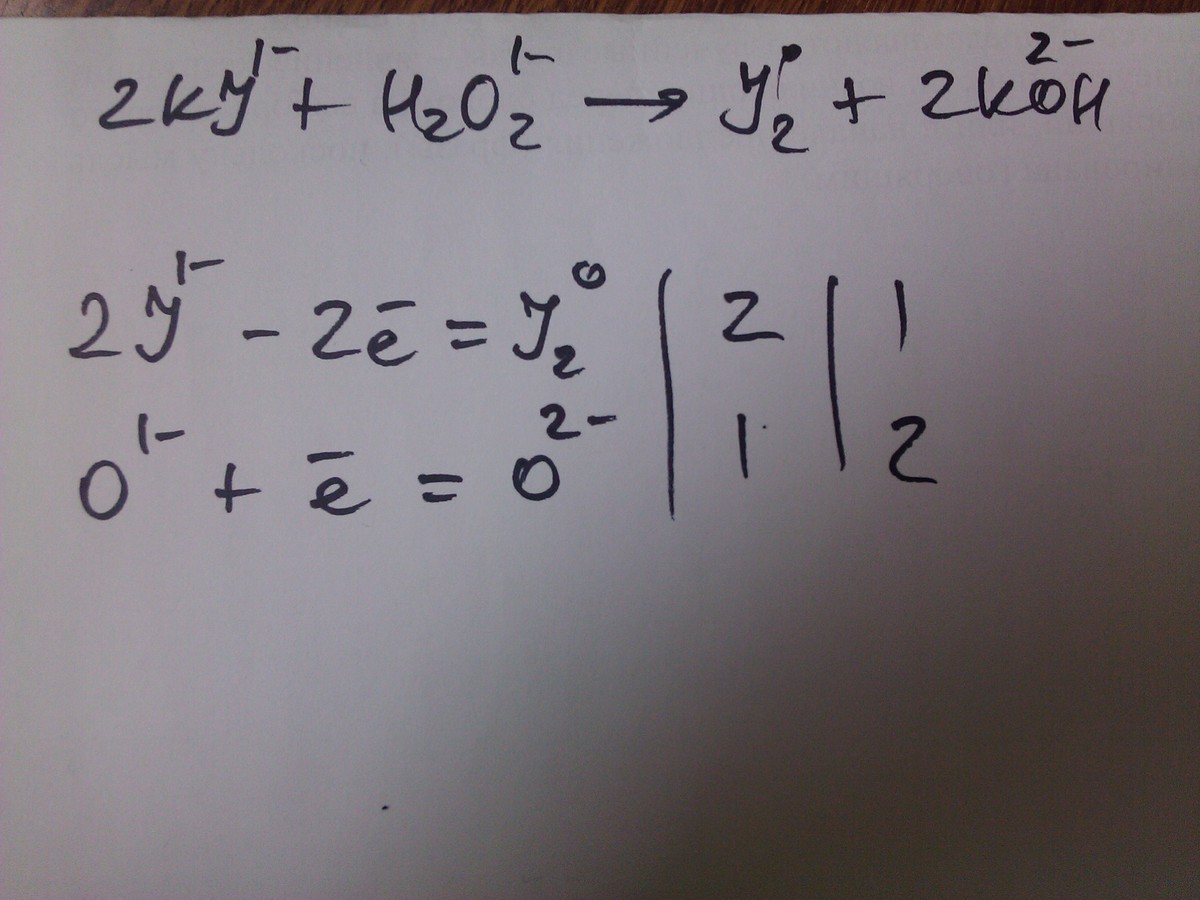 2KJ¹⁻ + H₂O₂¹⁻ → J₂⁰ + 2KO²⁻H
2J¹⁻ - 2ē = J₂⁰ | 2 | 1
O¹⁻ + ē = O²⁻ | 1 | 2